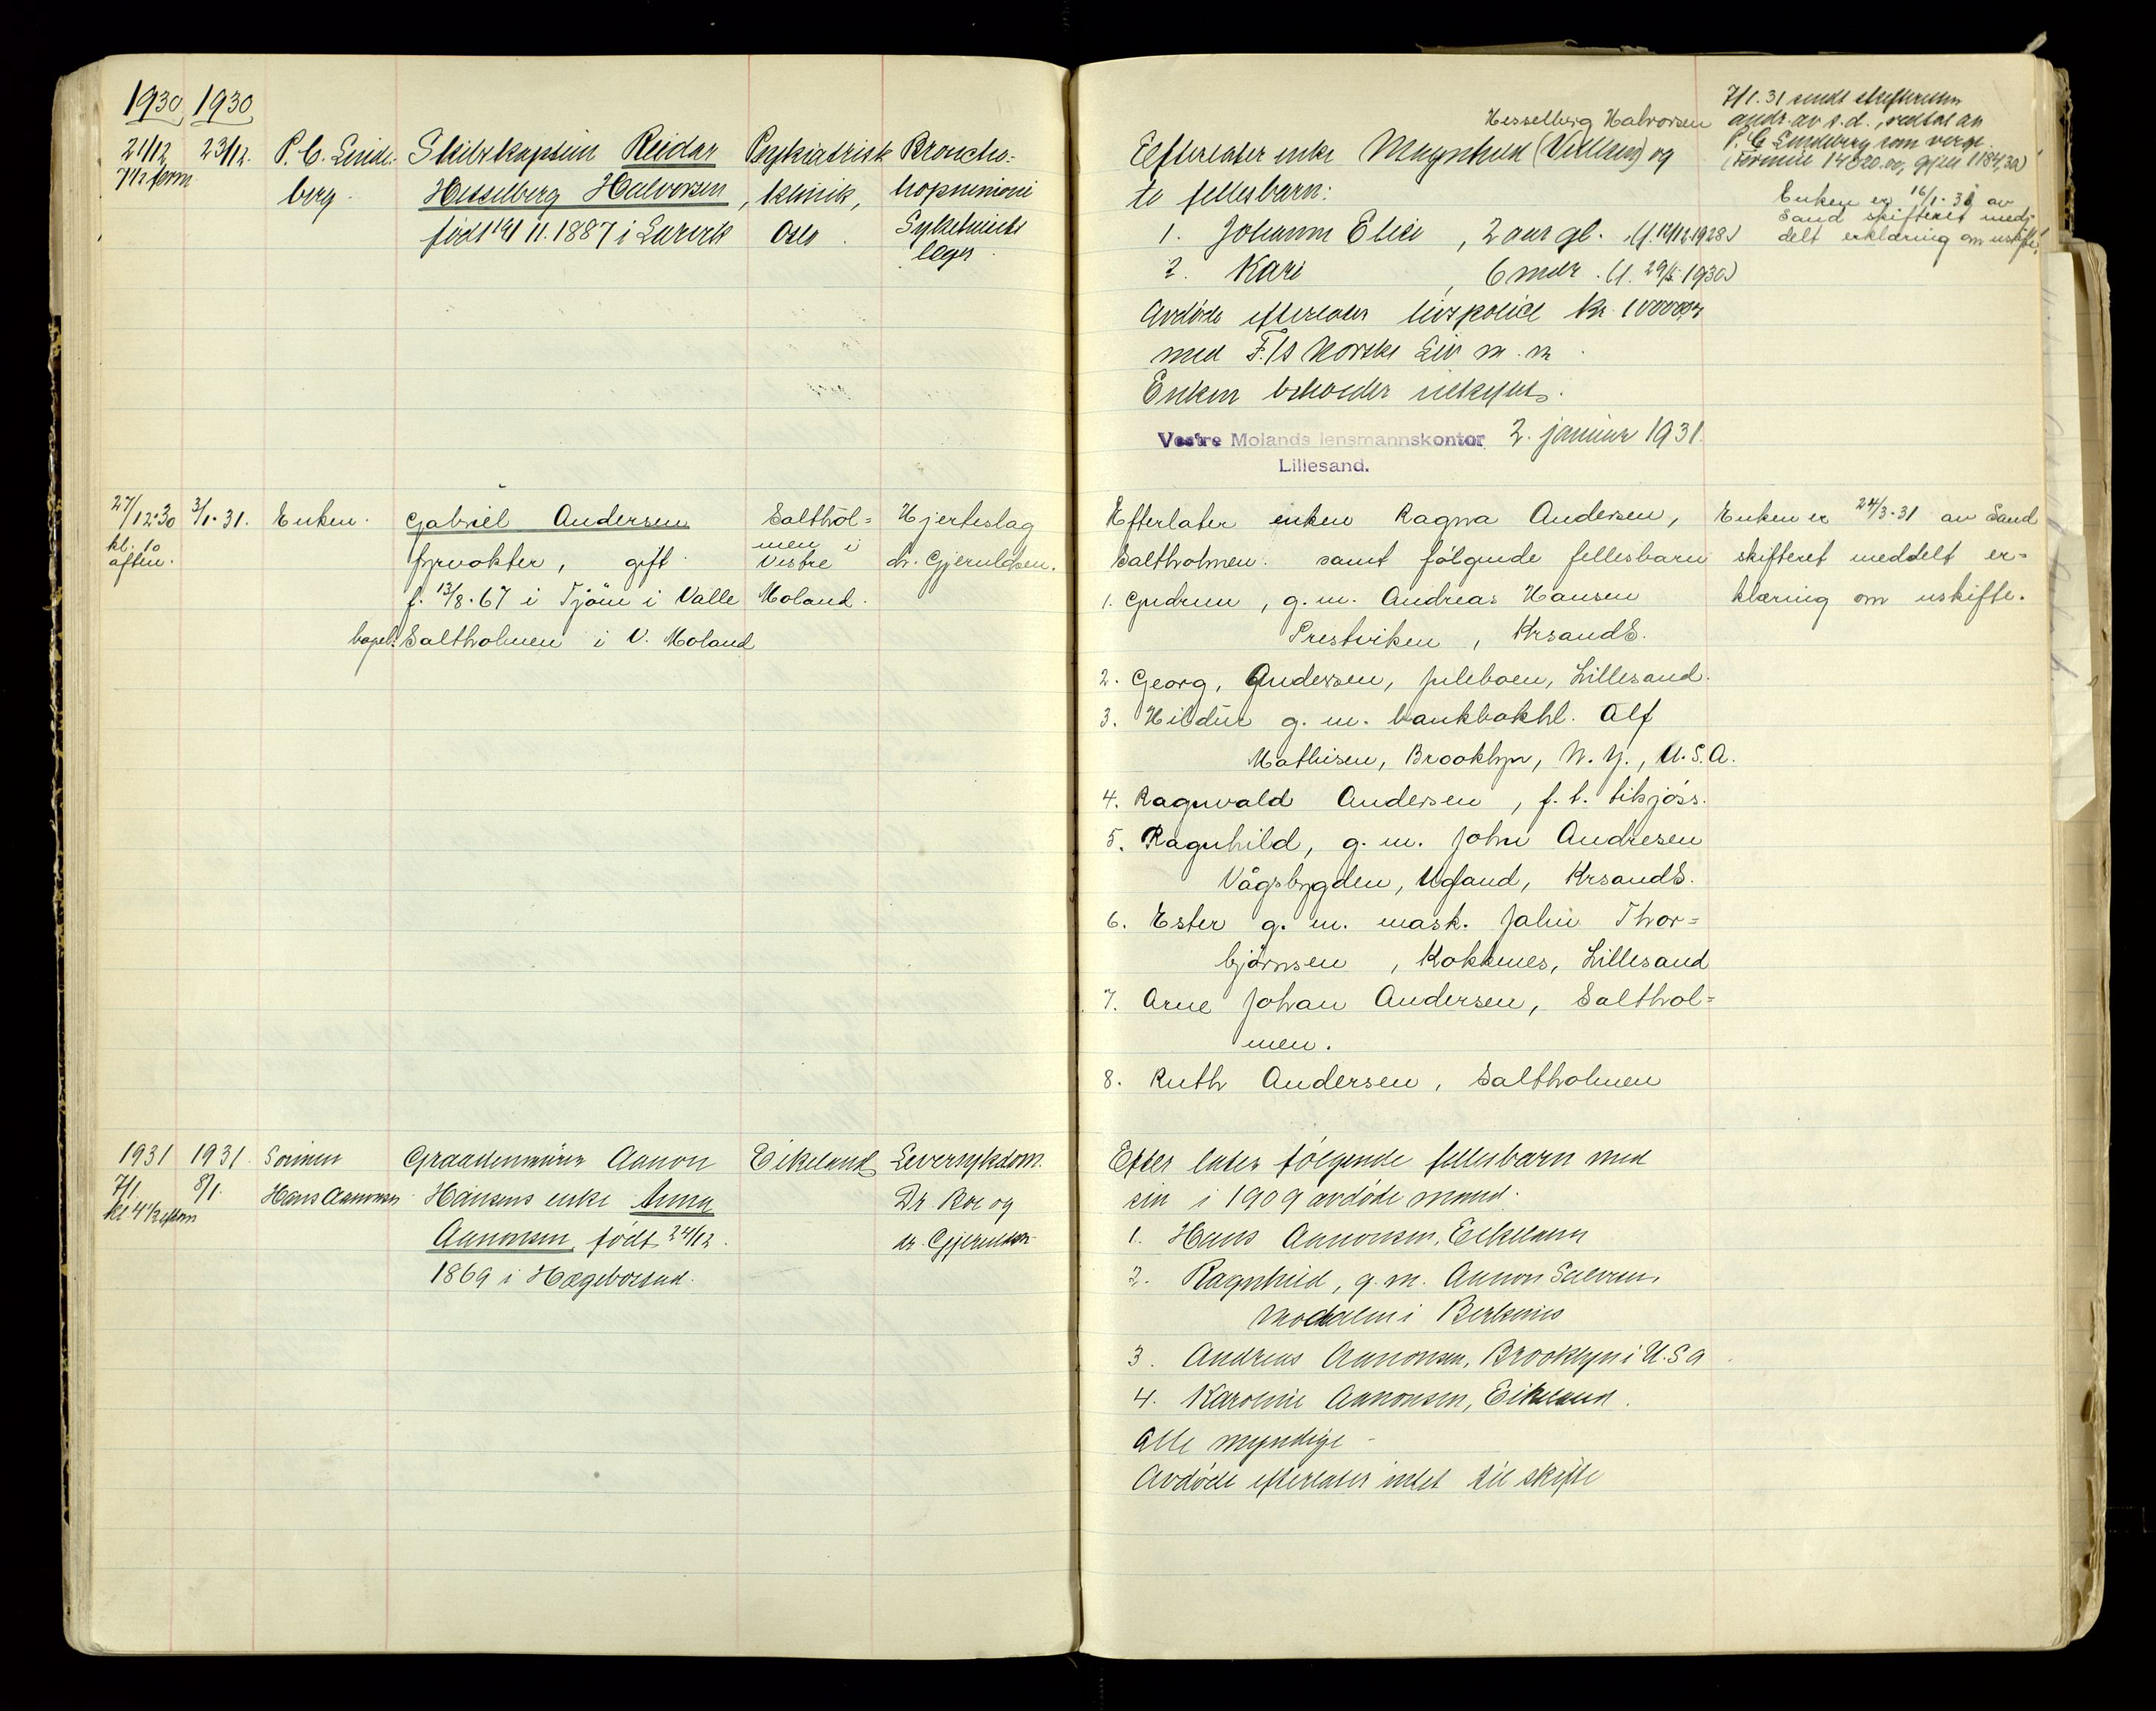 1930 1930
21/12 23/12. P. C. Linde-
7 1/2 form berg.
Skibskaptein Reidar
Hesselberg Halvorsen,
født 19/11. 1887 i Larvik
Psykiatrisk
klinik,
Oslo.
Broncho-
Sykehusets
læge
Hesselberg Halvorsen
Efterlater enke Magnhild og
to fellesbarn:
1. Johanne Elise, 2 aar gl. (f. 1928)
2. Kari, 6 mdr. (f. 29/5 1930)
Avdøde efterlater livspolice kr.
med F./S Norske Liv m. m.
Enken beholder
Vestre Molands lensmannskontor 2. januar 1931.
Lillesand.
7/1. 31 sendt skifteretten
andr. av s.d., vedtat av
P. C. Lindeberg som verge.
Enken er 16/1-31 av
Sand skifteret med-
delt erklæring om uskifte.
27/12-30 3/1-31. Enken.
kl. 10
aften.
Gabriel Andersen
fyrvokter, gift.
f. 13/8-67 i Tjøm i Valle
bopel: Saltholmen i V. Moland
Salthol-
men i
Vestre
Moland.
Hjerteslag
dr. Gjeruldsen.
Efterlater enken Ragna Andersen,
Saltholmen. samt følgende fellesbarn
1. Gudrun, g. m. Andreas Hansen
Prestviken, KrsandS.
2. Georg, Andersen, Juleboen, Lillesand.
3. Hildur g. m. bankbokhl. Alf
Mathisen, Brooklyn, N. Y., U.S.A.
4. Ragnvald Andersen, f. t. tilsjøss.
5. Ragnhild, g. m. John Andresen
Vågsbygden, KrsandS.
6. Ester g. m. mask. John Thor-
bjørnsen, Kokkenes, Lillesand
7. Arne Johan Andersen, Salthol-
men.
8. Ruth Andersen, Saltholmen
Enken er 24/3-31 av Sand
skifteret meddelt er-
klæring om uskifte.
1931 1931 Sønnen
7/1. 8/1. Hans Aanonsen
kl 4 1/2 efterm
Graastensminer Aanon
Hansens enke Anna
Aanonsen, født 24/12.
1869 i Hægebostad.
Eikeland
Leversykdom.
Dr. Roe og
dr. Gjeruldsen
Efterlater følgende fellesbarn med
sin i 1909 avdøde mand.
1. Hans Aanonsen, Eikeland
2. Ragnhild, g. m. Aanon
i Birkenes
3. Andreas Aanonsen, Brooklyn i U.S.A
4. Karoline Aanonsen, Eikeland.
Alle myndige
Avdøde efterlater intet til skifte